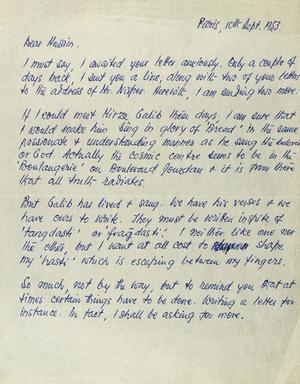 Paris, 10th Sept. 1953
Dear Hussain,
I must say, I awaited your letter anxiously. Only a couple of
days back, I sent you a line, along with two of your letters
to the address of Mr. Herewith, I am sending two more.
If I could meet Mirza Galib these days, I am sure that
I would make him sing in glory of 'Bread' in the same
passionate & understanding manner as he sang the beloved
or God. Actually the cosmic centre seems to be in the
'Boulangerie' on Boulevard Jourdan & it is from there
that all truth radiates.
But Galib has lived & sang. We have his verses & we
have ours to write. They must be written inspite of
'tangdasti' or 'fragdasti'. I neither like one nor
the other, but I want at all cost to shape
my 'hasti' which is escaping between my fingers.
So much, not by the way, but to remind you that at
times certain things have to be done. Writing a letter for
instance. In fact, I shall be asking for more.